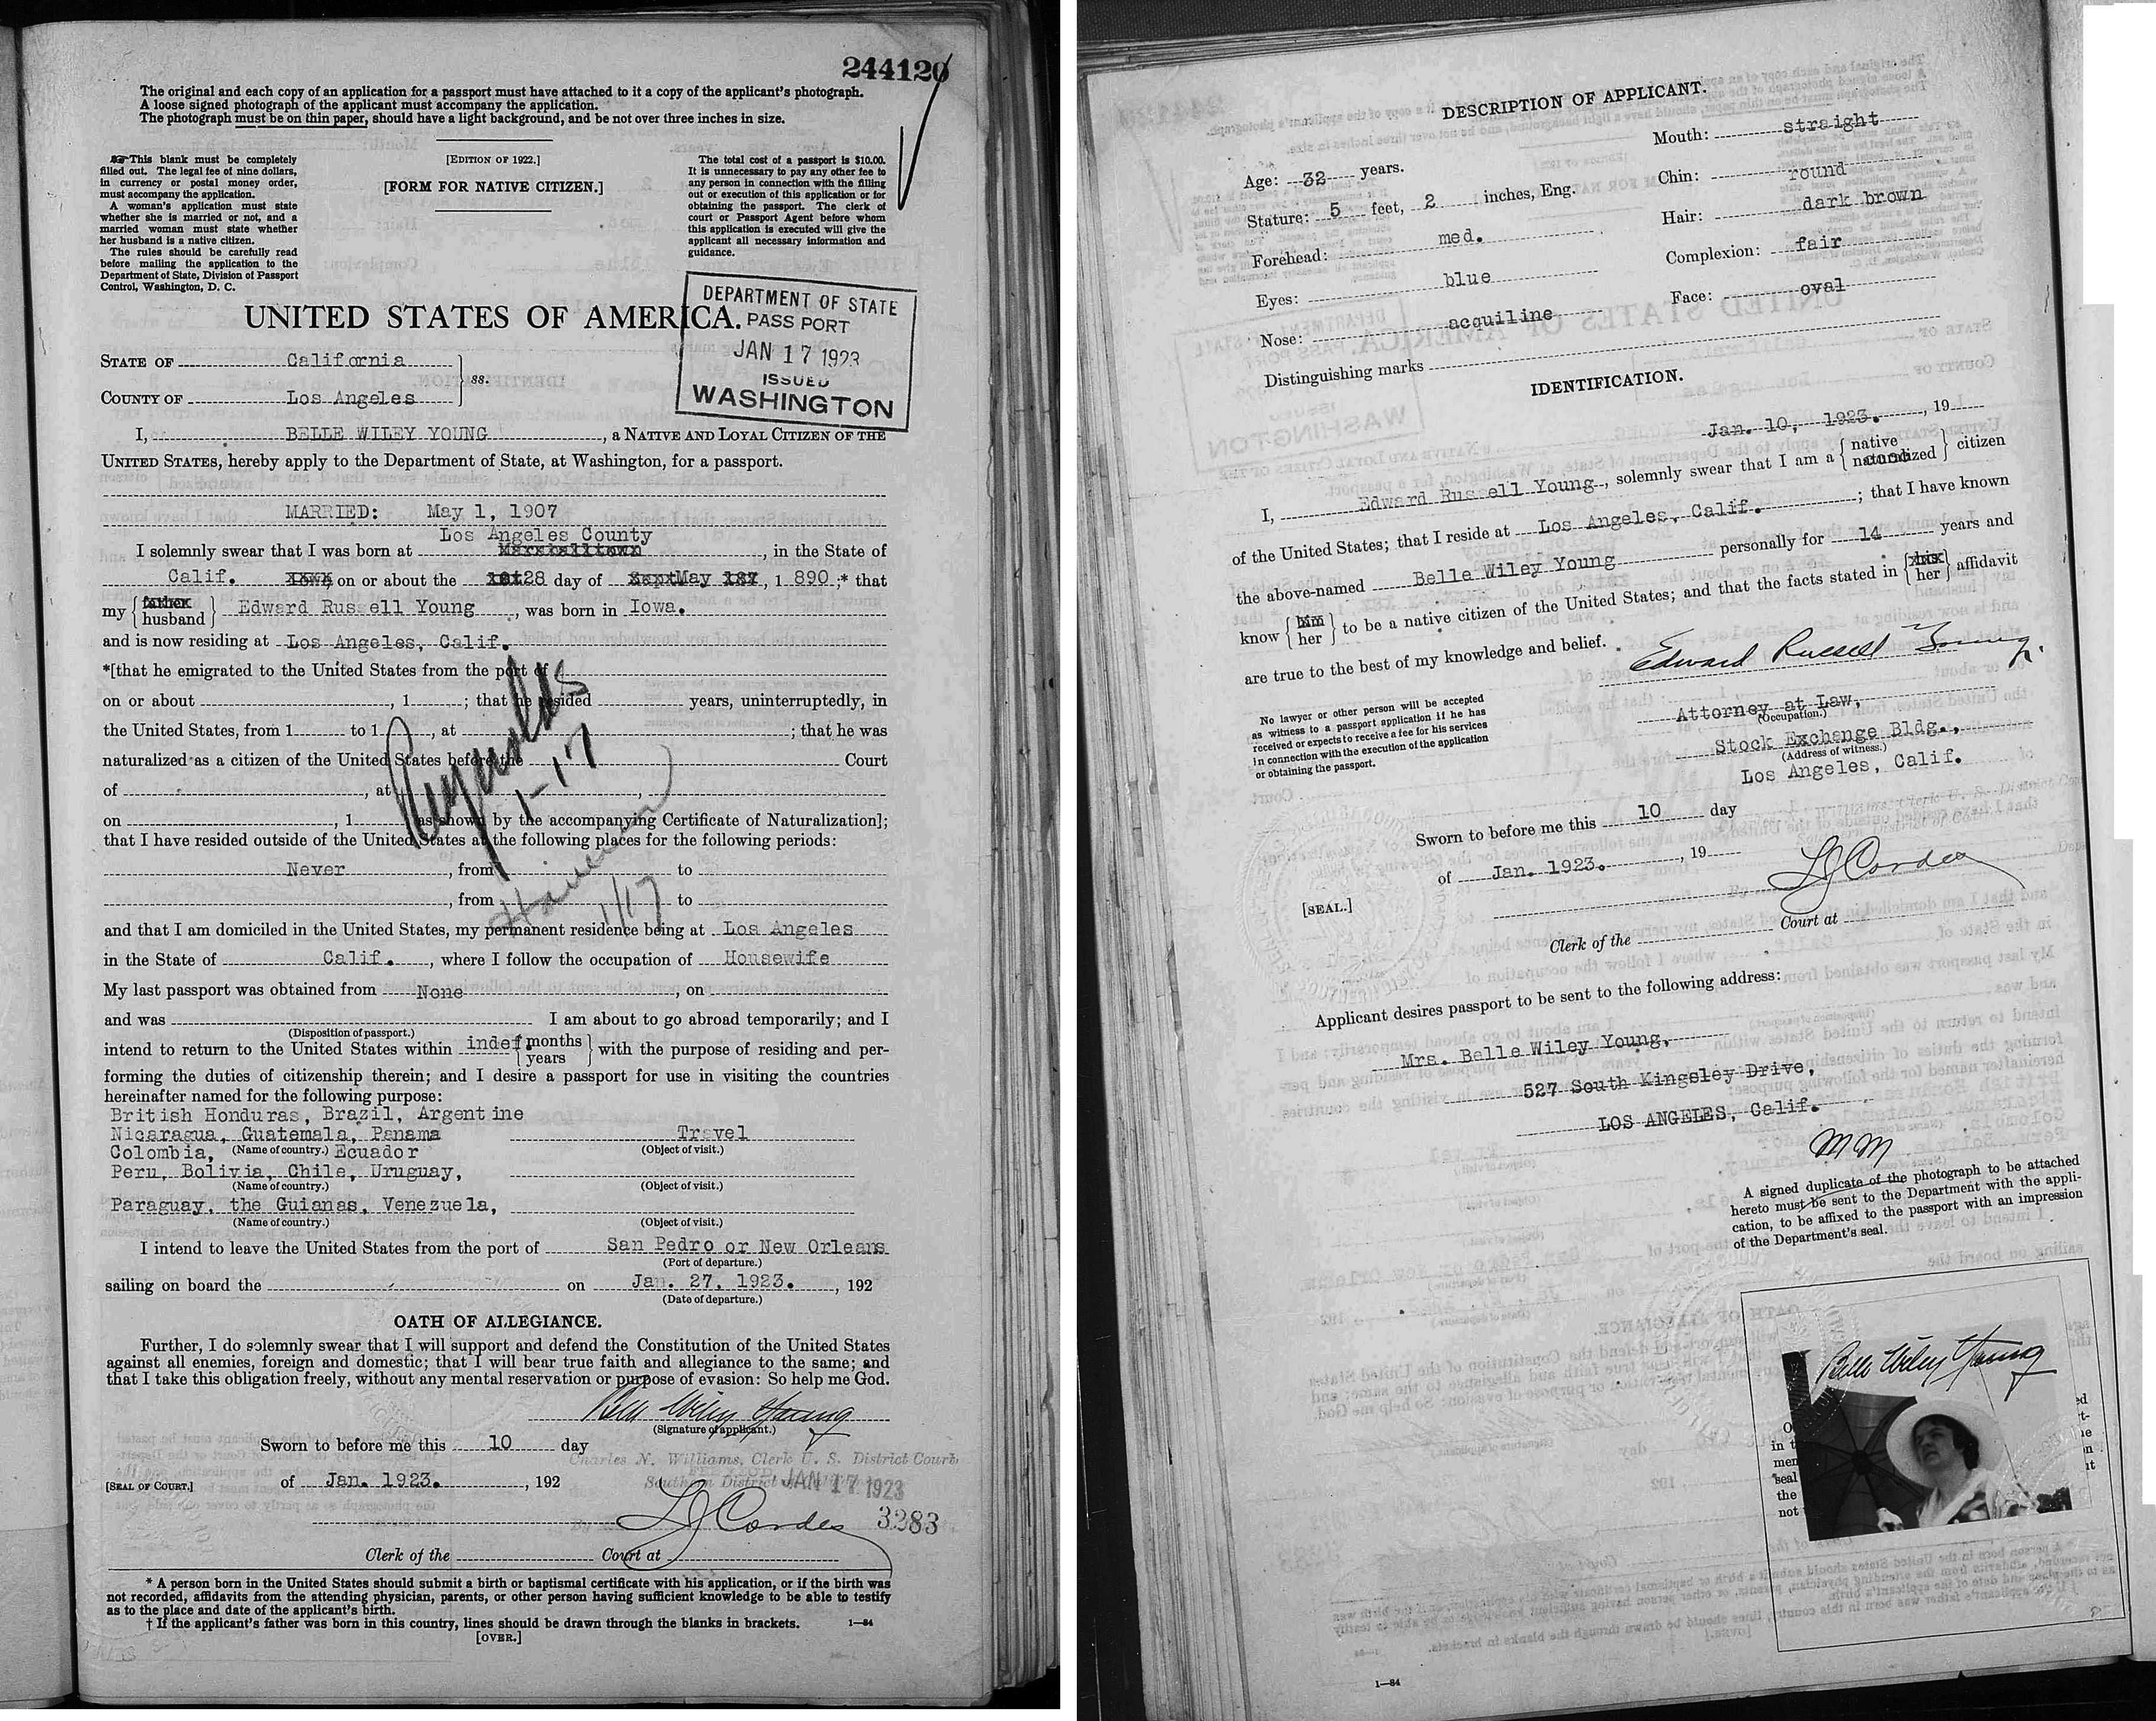 244120
The original and each copy of an application for a passport must have attached to it a copy of the applicant's photograph.
A loose signed photograph of the applicant must accompany the application.
The photograph must be on thin paper, should have a light background, and be not over three inches in size.
This blank must be completely
filled out. The legal fee of nine dollars,
in currency or postal money order,
must accompany the application.
A woman's application must state
whether she is married or not, and a
married woman must state whether
her husband is a native citizen.
The rules should be carefully read
before mailing the application to the
Department of State, Division of Passport
Control, Washington, D. C.
[EDITION OF 1922.]
[FORM FOR NATIVE CITIZEN.]
The total cost of a passport is $10.00.
It is unnecessary to pay any other fee to
any person in connection with the filling
out or execution of this application or for
obtaining the passport. The clerk of
court or Passport Agent before whom
this application is executed will give the
applicant all necessary information and
guidance.
UNITED STATES OF AMERICA.
DEPARTMENT OF STATE
PASSPORT
JAN 17 1923
ISSUED
WASHINGTON
STATE OF California
COUNTY OF Los Angeles
ss.
I, BELLE WILEY YOUNG, a NATIVE AND LOYAL CITIZEN OF THE
UNITED STATES, hereby apply to the Department of State, at Washington, for a passport.
MARRIED: May 1, 1907
Los Angeles County
I solemnly swear that I was born at Marshalltown, in the State of
Calif. on or about the 28 day of May, 1 890 ;* that
my { father husband } Edward Russell Young, was born in Iowa.
and is now residing at Los Angeles, Calif.
*[that he emigrated to the United States from the port of
on or about , 1 ; that he resided years, uninterruptedly, in
the United States, from 1 to 1 , at ; that he was
naturalized as a citizen of the United States before the Court
of , at ,
on , 1 as shown by the accompanying Certificate of Naturalization];
that I have resided outside of the United States at the following places for the following periods:
Never , from to
, from to
Reynolds
1-17
1/17
and that I am domiciled in the United States, my permanent residence being at Los Angeles
in the State of Calif. , where I follow the occupation of Housewife
My last passport was obtained from None , on
and was I am about to go abroad temporarily; and I
(Disposition of passport.)
intend to return to the United States within indef. { months years } with the purpose of residing and per-
forming the duties of citizenship therein; and I desire a passport for use in visiting the countries
hereinafter named for the following purpose:
British Honduras, Brazil, Argentine
Nicaragua, Guatemala, Panama Travel
Colombia, (Name of country.) Ecuador (Object of visit.)
Peru, Bolivia, Chile, Uruguay,
(Name of country.) (Object of visit.)
Paraguay, the Guianas, Venezuela,
(Name of country.) (Object of visit.)
I intend to leave the United States from the port of San Pedro or New Orleans
(Port of departure.)
sailing on board the on Jan. 27, 1923. , 192
(Date of departure.)
OATH OF ALLEGIANCE.
Further, I do solemnly swear that I will support and defend the Constitution of the United States
against all enemies, foreign and domestic; that I will bear true faith and allegiance to the same; and
that I take this obligation freely, without any mental reservation or purpose of evasion: So help me God.
Belle Wiley Young
(Signature of applicant.)
Sworn to before me this 10 day
Charles N. Williams, Clerk U. S. District Court
[SEAL OF COURT.] of Jan. 1923. , 192
Southern District
JAN 17 1923
L J Cordes
3283
Clerk of the Court at
* A person born in the United States should submit a birth or baptismal certificate with his application, or if the birth was
not recorded, affidavits from the attending physician, parents, or other person having sufficient knowledge to be able to testify
as to the place and date of the applicant's birth.
† If the applicant's father was born in this country, lines should be drawn through the blanks in brackets.
1—84
[OVER.]
DESCRIPTION OF APPLICANT.
Age: 32 years.
Stature: 5 feet, 2 inches, Eng.
Forehead: med.
Eyes: blue
Nose: acquiline
Distinguishing marks
Mouth: straight
Chin: round
Hair: dark brown
Complexion: fair
Face: oval
IDENTIFICATION.
Jan. 10, 1923. , 19
I, Edward Russell Young, solemnly swear that I am a { native naturalized } citizen
of the United States; that I reside at Los Angeles, Calif. ; that I have known
the above-named Belle Wiley Young personally for 14 years and
know { him her } to be a native citizen of the United States; and that the facts stated in { his her } affidavit
are true to the best of my knowledge and belief.
Edward Russell Young
No lawyer or other person will be accepted
as witness to a passport application if he has
received or expects to receive a fee for his services
in connection with the execution of the application
or obtaining the passport.
Attorney at Law,
(Occupation.)
Stock Exchange Bldg.,
(Address of witness.)
Los Angeles, Calif.
Sworn to before me this 10 day
of Jan. 1923. , 19
L J Cordes
[SEAL.]
Clerk of the Court at
Applicant desires passport to be sent to the following address:
Mrs. Belle Wiley Young,
527 South Kingsley Drive,
LOS ANGELES, Calif.
MM
A signed duplicate of the photograph to be attached
hereto must be sent to the Department with the appli-
cation, to be affixed to the passport with an impression
of the Department's seal.
Belle Wiley Young
in t
men
seal
the
not
1—84